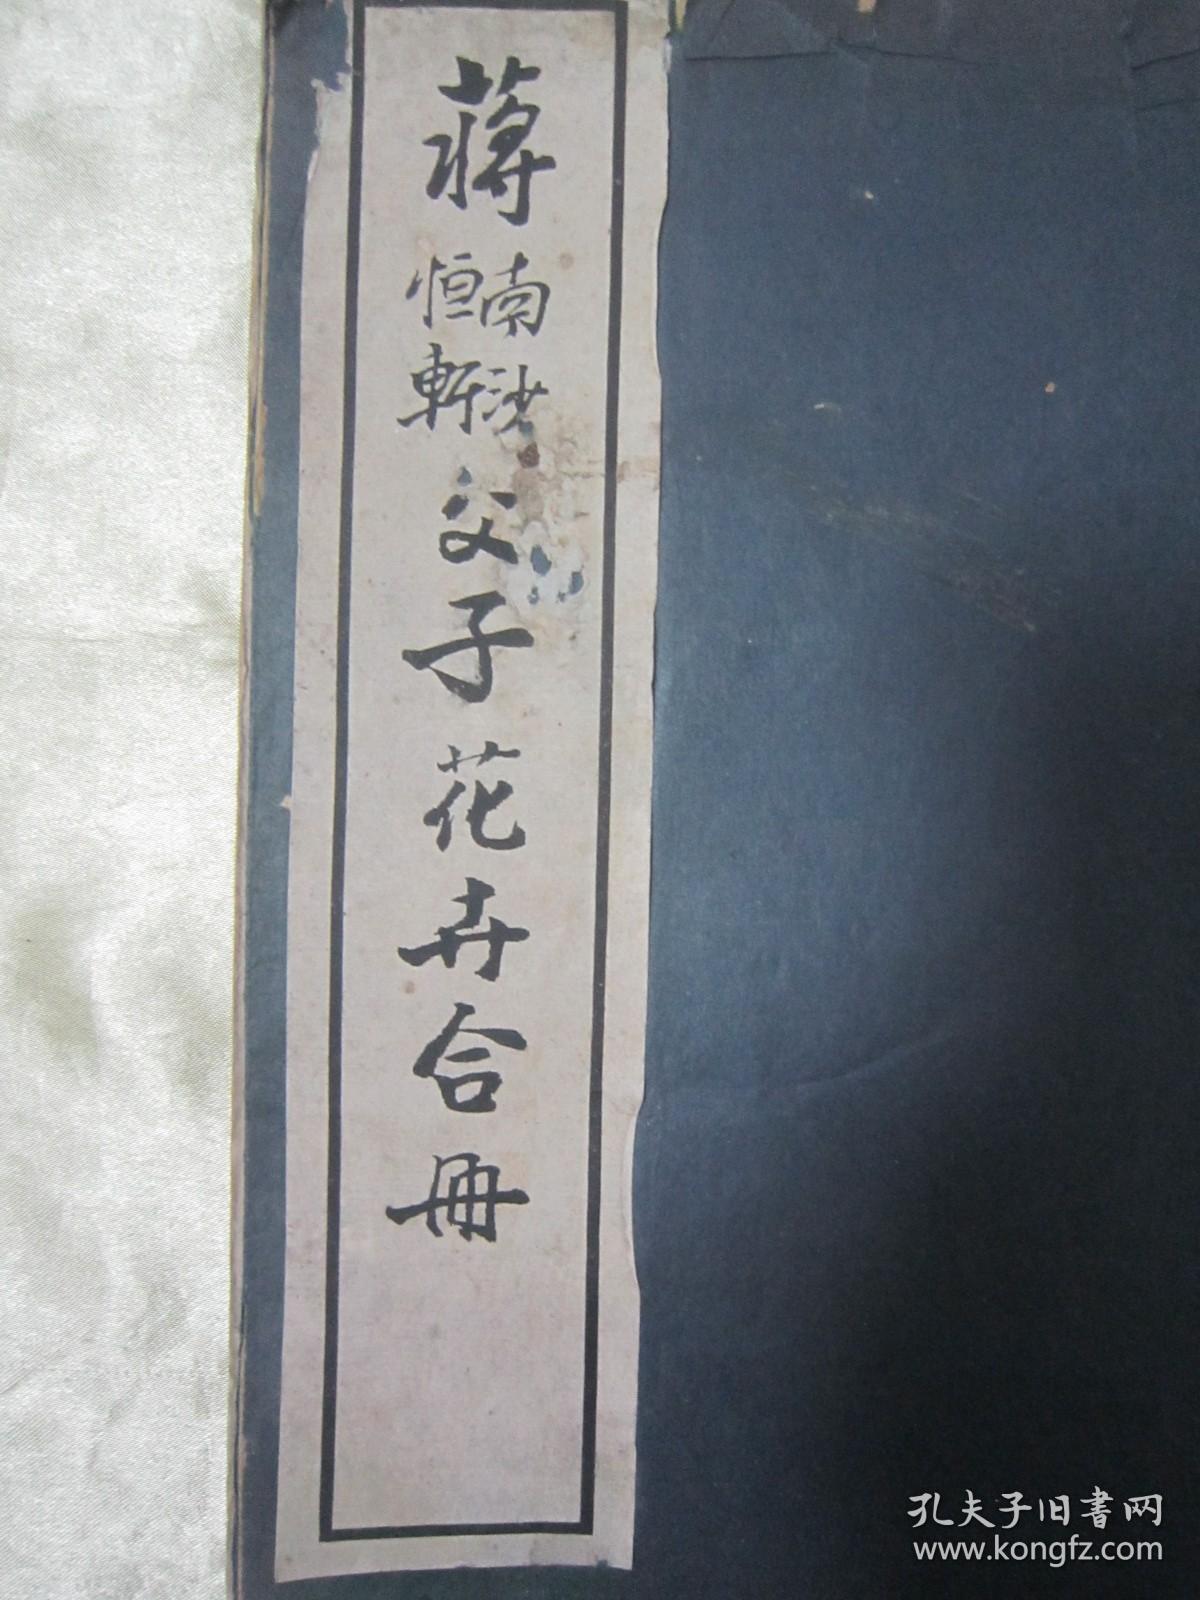 蔣南沙恒軒父子花卉合冊
孔夫子旧書网
www.kongfz.com